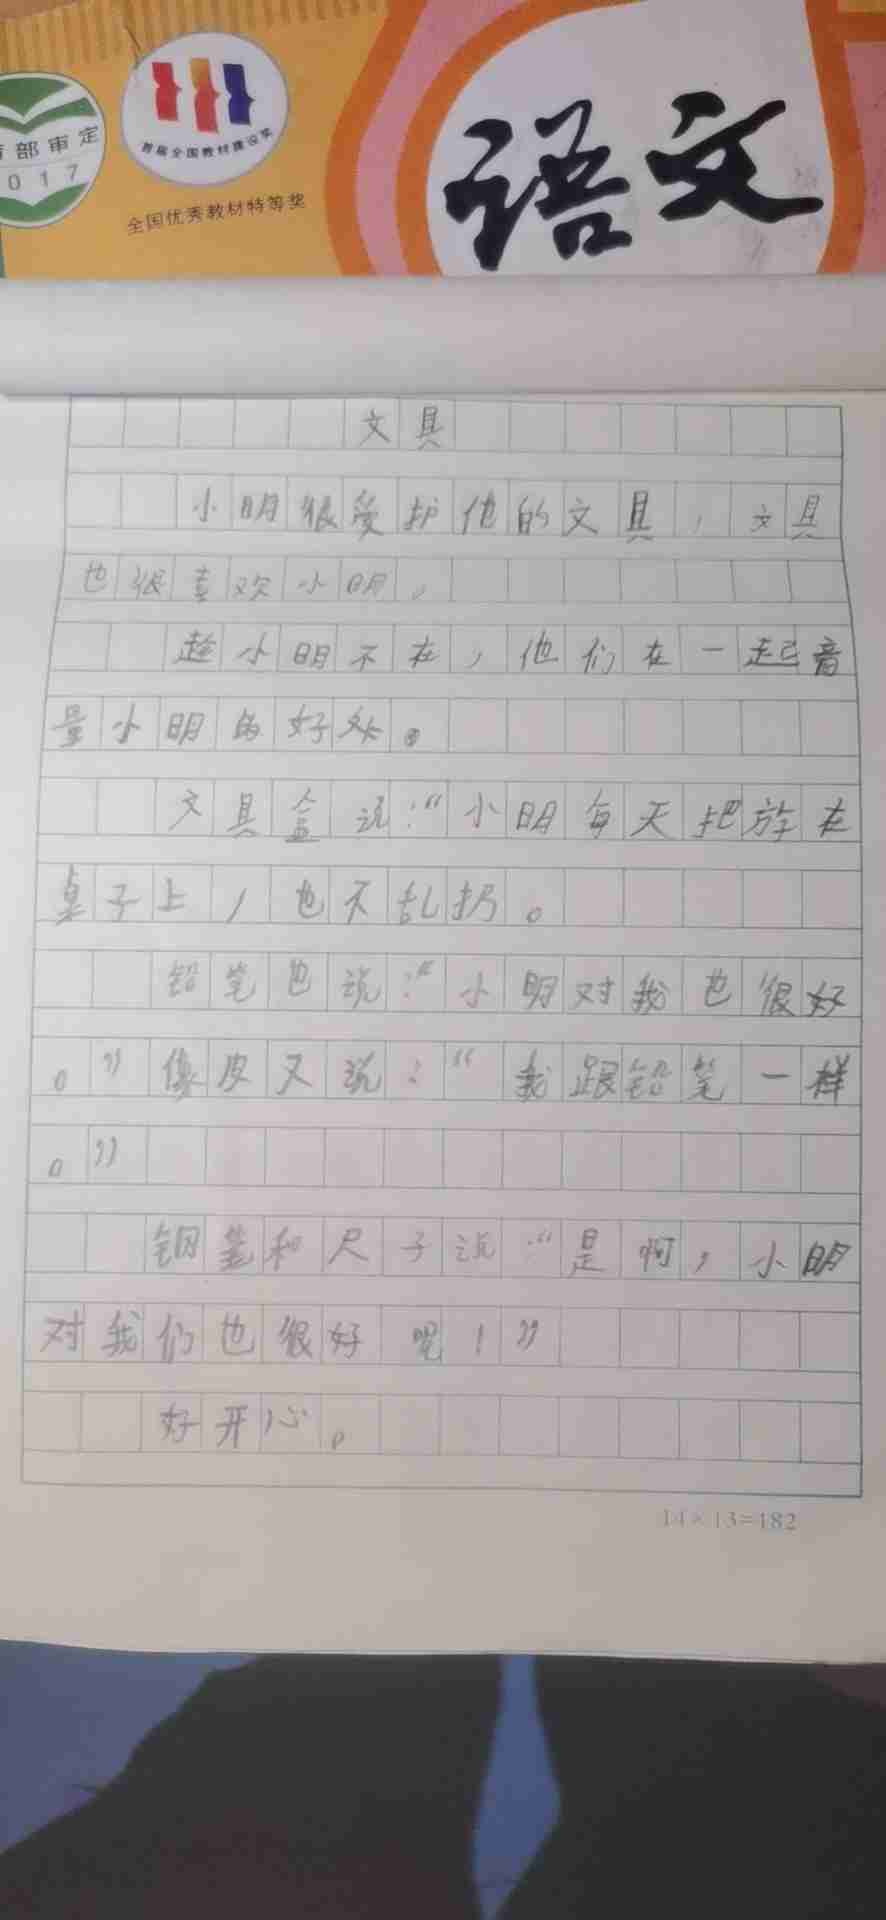 育部审定
2017
首届全国教材建设奖
全国优秀教材特等奖
语文
文具
小明很爱护他的文具,文具
也很喜欢小明,
趁小明不在,他们在一起音
量小明的好处。
文具盒说:“小明每天把放在
桌子上,也不乱扔。
铅笔也说:“小明对我也很好
。”像皮又说:“我跟铅笔一样
。”
钢笔和尺子说:“是啊,小明
对我们也很好呢!”
好开心。
14×13=182